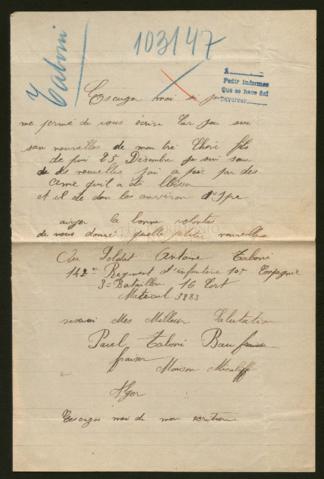 Taboni
103147
A
Pedir informes
Que se hace del
Escuzer moi si je
me permé de vous écrire Car je suis
san nouvelles de mon tré Chéri fils
de puis 25 Désembre je suis sans
de ses nouvelles j'ai a peur par des
qu'il a été
A il de don les environ d'Ypre
ayez la bonne volonter
de vous donné quelle petite nouvelles
Au Soldat Antoine Taboni
142e Regiment d'infanterie 10e Compagnie
3e Bataillon 16 Cort
Matricul 3283
recevoir Mes Melleur Salutation
Paul Taboni
Maison
Alger
Escuzer moi de mon écriture